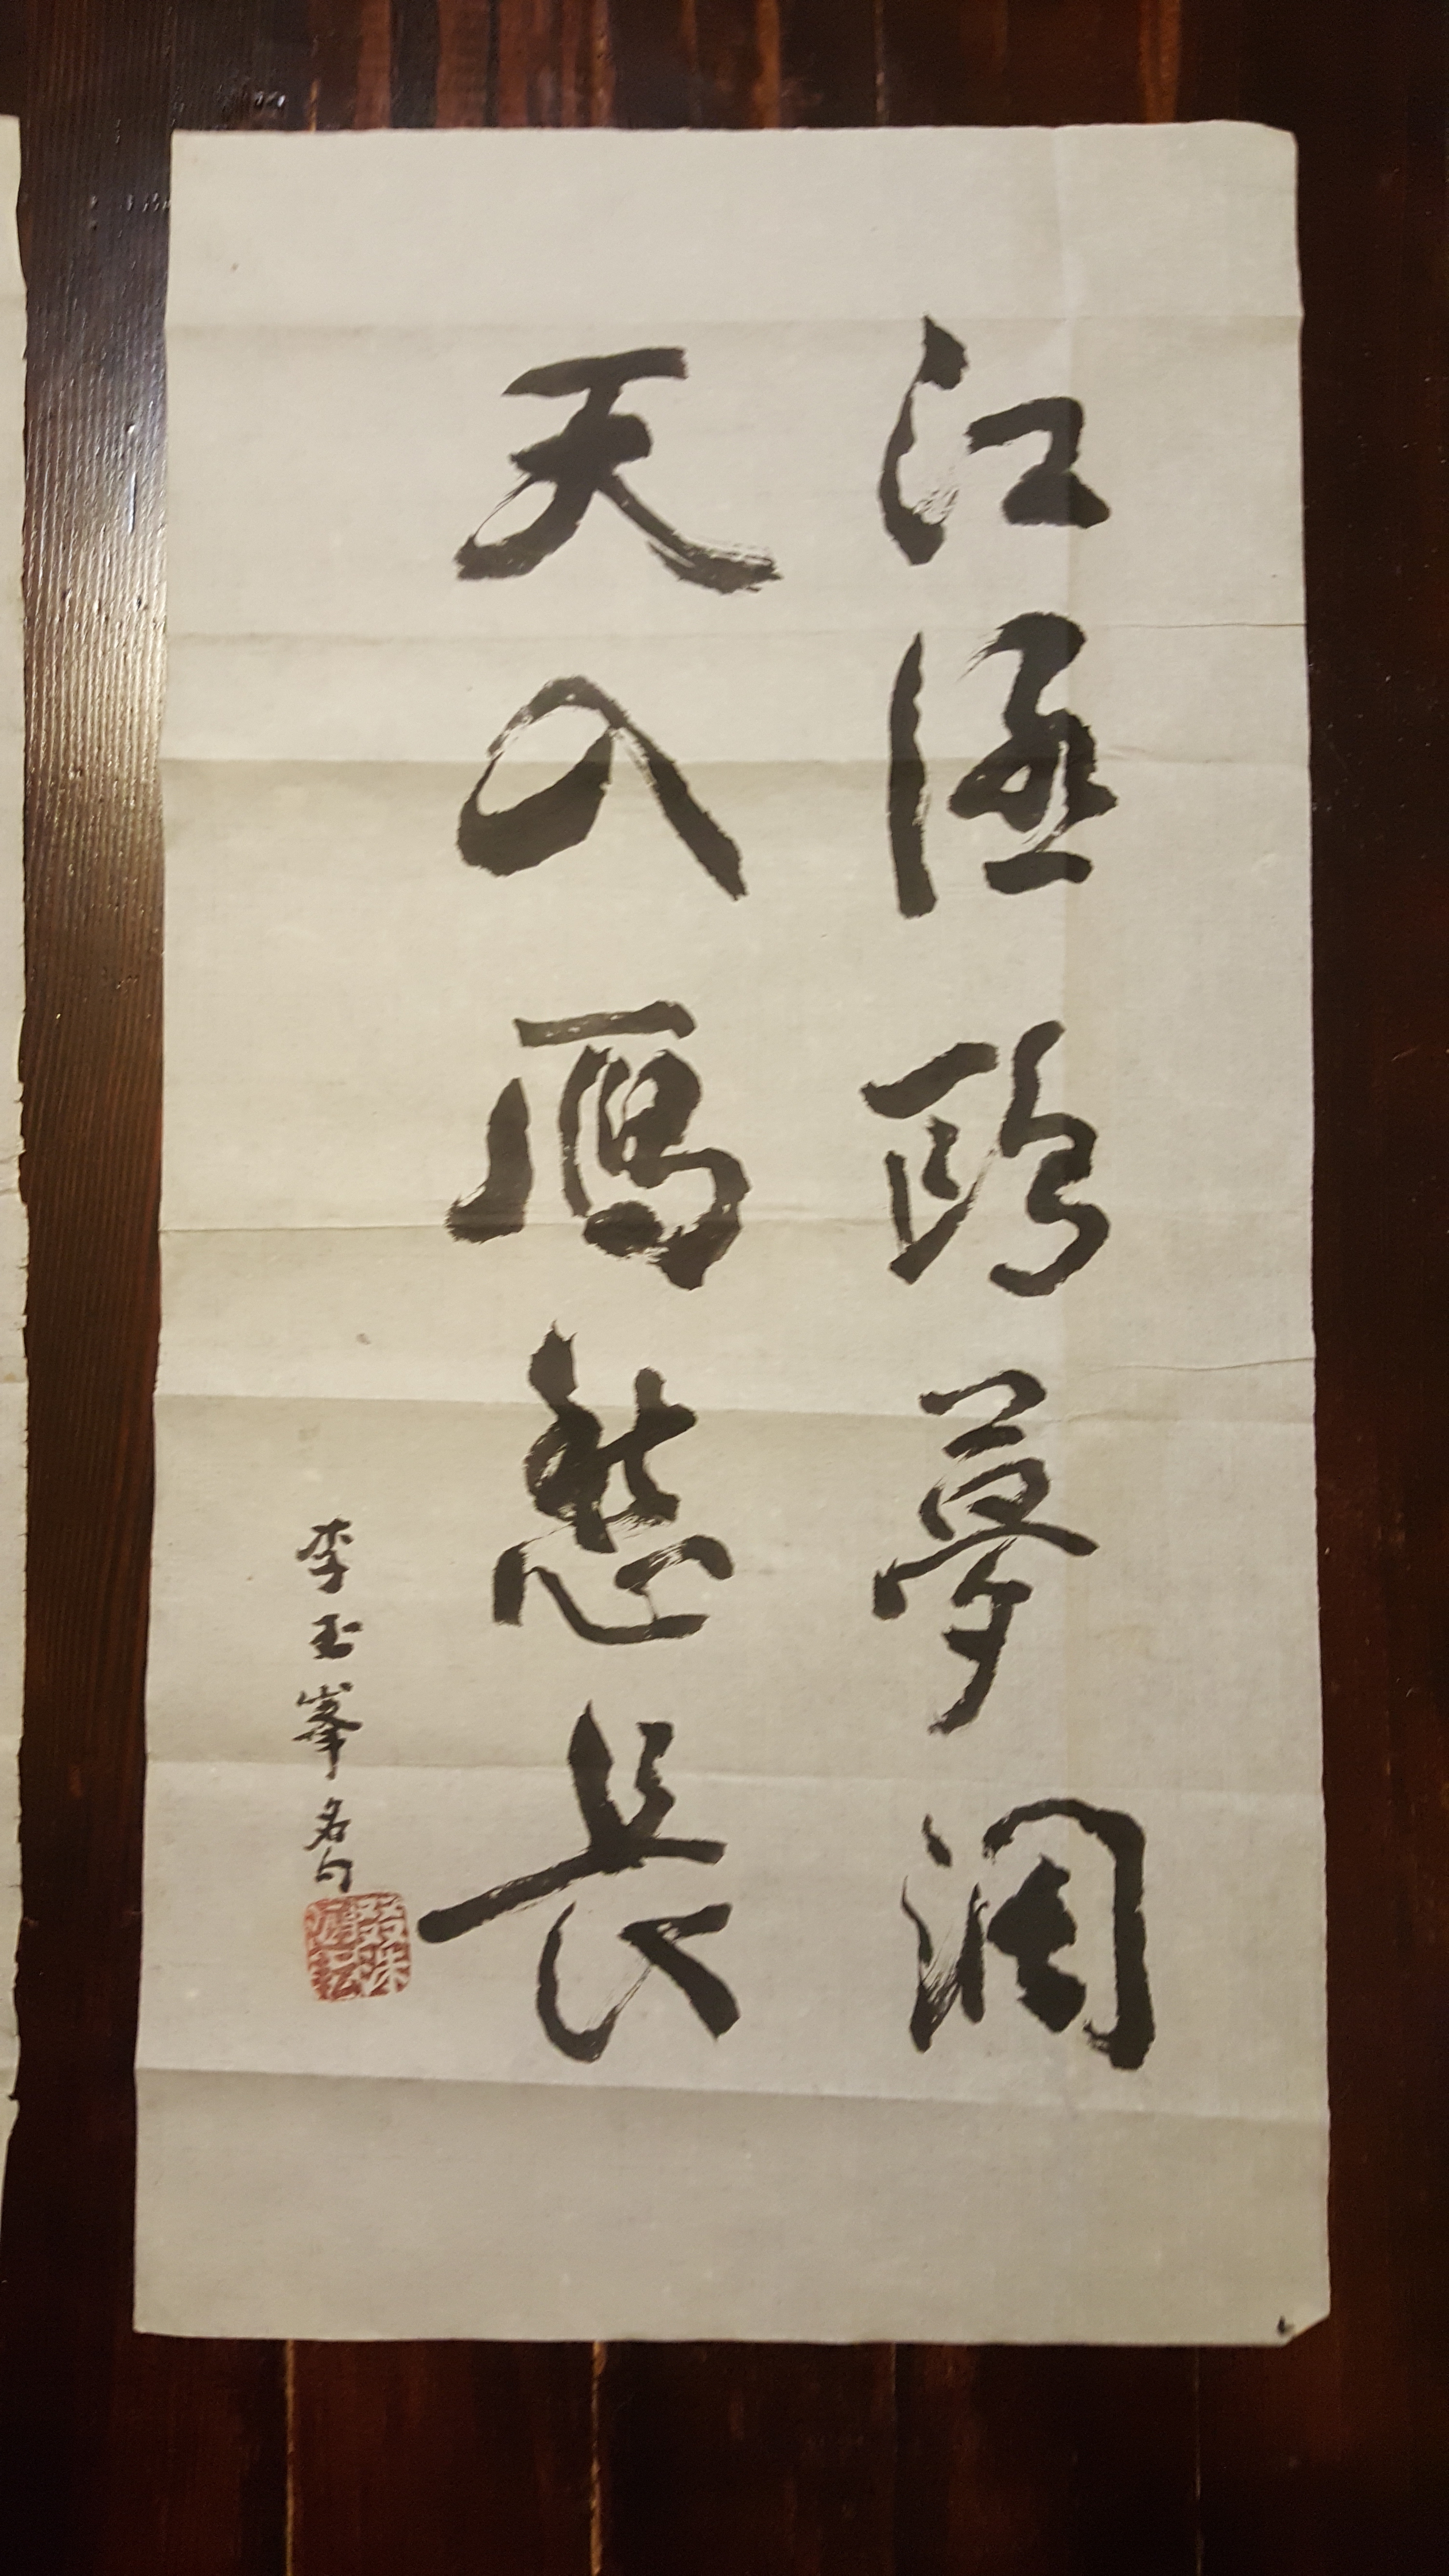 江涵鷗夢濶
天入鴈愁長
李玉峯名句